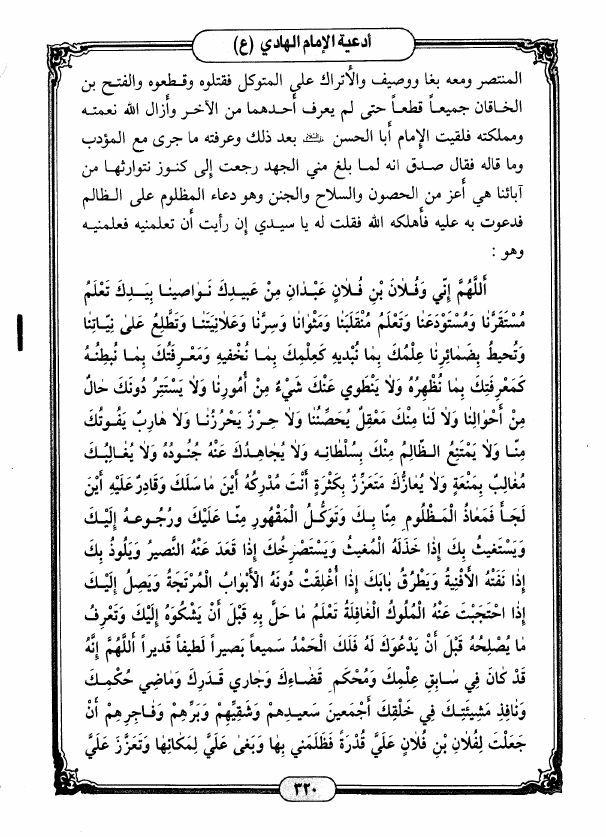 أدعية الإمام الهادي (ع)
المنتصر ومعه بغا ووصيف والأتراك على المتوكل فقتلوه وقطعوه والفتح بن
الخاقان جميعاً قطعاً حتى لم يعرف أحدهما من الآخر وأزال الله نعمته
ومملكته فلقيت الإمام أبا الحسن بعد ذلك وعرفته ما جرى مع المؤدب
وما قاله فقال صدق انه لما بلغ مني الجهد رجعت إلى كنوز نتوارثها من
آبائنا هي أعز من الحصون والسلاح والجنن وهو دعاء المظلوم على الظالم
فدعوت به عليه فأهلكه الله فقلت له يا سيدي إن رأيت أن تعلمنيه فعلمنيه
وهو :
أَللَّهُمَّ إِنِّي وَفُلانَ بْنِ فُلانٍ عَبْدَانِ مِنْ عَبِيدِكَ نَوَاصِينَا بِيَدِكَ تَعْلَمُ
مُسْتَقَرَّنَا وَمُسْتَوْدَعَنَا وَتَعْلَمُ مُنْقَلَبَنَا وَمَثْوَانَا وَسِرَّنَا وَعَلانِيَتَنَا وَتَطَّلِعُ عَلَى نِيَّاتِنَا
وَتُحِيطُ بِضَمَائِرِنَا عِلْمُكَ بِمَا نُبْدِيهِ كَعِلْمِكَ بِمَا نُخْفِيهِ وَمَعْرِفَتُكَ بِمَا نُبْطِنُهُ
كَمَعْرِفَتِكَ بِمَا نُظْهِرُهُ وَلا يَنْطَوِي عَنْكَ شَيْءٌ مِنْ أُمُورِنَا وَلا يَسْتَتِرُ دُونَكَ حَالٌ
مِنْ أَحْوَالِنَا وَلا لَنَا مِنْكَ مَعْقِلٌ يُحَصِّنُنَا وَلا حِرْزٌ يَحْرُزُنَا وَلا هَارِبٌ يَفُوتُكَ
مِنَّا وَلا يَمْتَنِعُ الظَّالِمُ مِنْكَ بِسُلْطَانِهِ وَلا يُجَاهِدُكَ عَنْهُ جُنُودُهُ وَلا يُغَالِبُكَ
مُغَالِبٌ بِمَنْعَةٍ وَلا يُعَازُّكَ مُتَعَزِّزٌ بِكَثْرَةٍ أَنْتَ مُدْرِكُهُ أَيْنَ مَا سَلَكَ وَقَادِرٌ عَلَيْهِ أَيْنَ
لَجَأَ فَمَعَاذُ الْمَظْلُومِ مِنَّا بِكَ وَتَوَكُّلُ الْمَقْهُورِ مِنَّا عَلَيْكَ وَرُجُوعُهُ إِلَيْكَ
وَيَسْتَغِيثُ بِكَ إِذَا خَذَلَهُ الْمُغِيثُ وَيَسْتَصْرِخُكَ إِذَا قَعَدَ عَنْهُ النَّصِيرُ وَيَلُوذُ بِكَ
إِذَا نَفَتْهُ الأَفْنِيَةُ وَيَطْرُقُ بَابَكَ إِذَا أُغْلِقَتْ دُونَهُ الأَبْوَابُ الْمُرْتَجَةُ وَيَصِلُ إِلَيْكَ
إِذَا احْتَجَبَتْ عَنْهُ الْمُلُوكُ الْغَافِلَةُ تَعْلَمُ مَا حَلَّ بِهِ قَبْلَ أَنْ يَشْكُوَهُ إِلَيْكَ وَتَعْرِفُ
مَا يُصْلِحُهُ قَبْلَ أَنْ يَدْعُوَكَ لَهُ فَلَكَ الْحَمْدُ سَمِيعاً بَصِيراً لَطِيفاً قَدِيراً أَللَّهُمَّ إِنَّهُ
قَدْ كَانَ فِي سَابِقِ عِلْمِكَ وَمُحْكَمِ قَضَاءِكَ وَجَارِي قَدَرِكَ وَمَاضِي حُكْمِكَ
وَنَافِذِ مَشِيئَتِكَ فِي خَلْقِكَ أَجْمَعِينَ سَعِيدِهِمْ وَشَقِيِّهِمْ وَبَرِّهِمْ وَفَاجِرِهِمْ أَنْ
جَعَلْتَ لِفُلانِ بْنِ فُلانٍ عَلَيَّ قُدْرَةً فَظَلَمَنِي بِهَا وَبَغَى عَلَيَّ لِمَكَانِهَا وَتَعَزَّزَ عَلَيَّ
٣٢٠